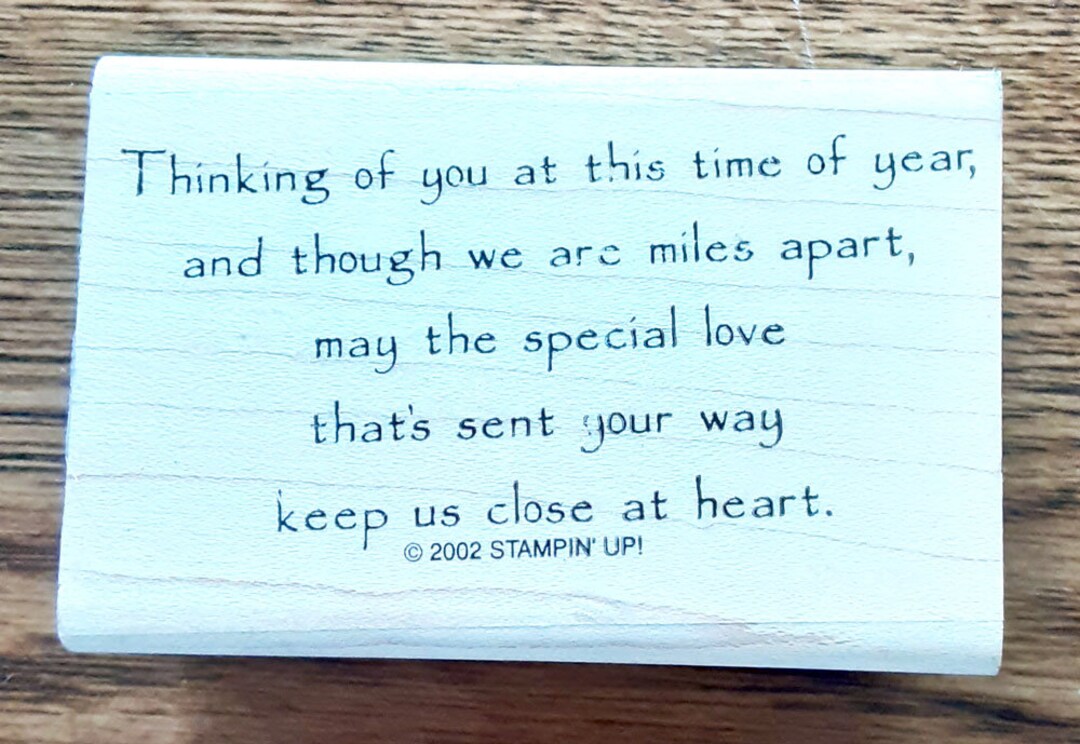 Thinking of you at this time of year,
and though we are miles apart,
may the special love
that's sent your way
keep us close at heart.
© 2002 STAMPIN' UP!